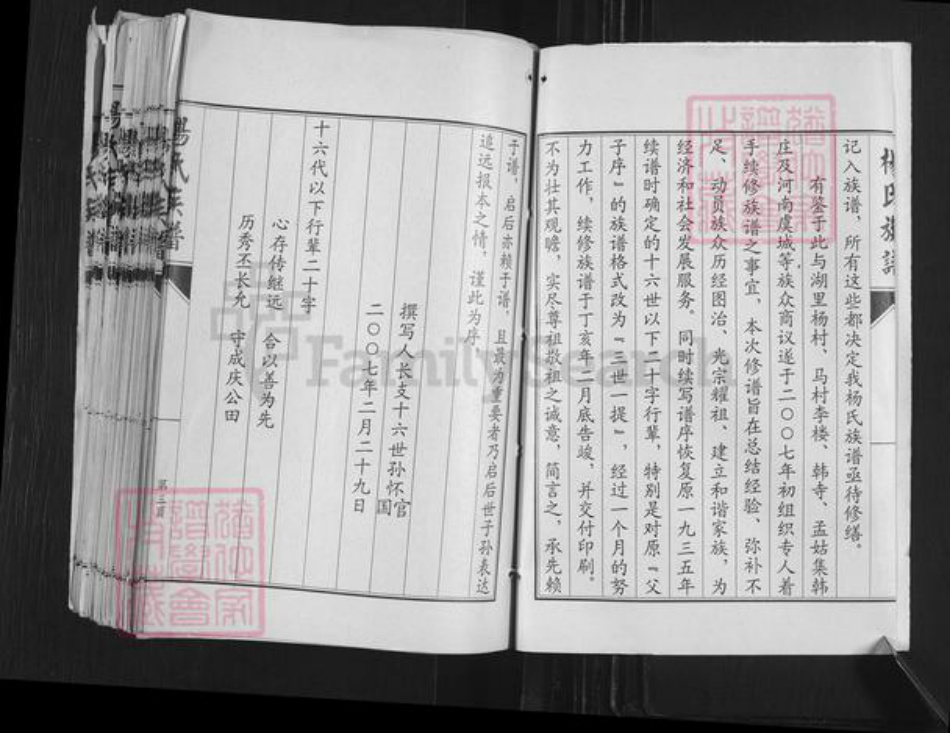 杨氏族谱
记入族谱，所有这些都决定我杨氏族谱亟待修缮。
有鉴于此与湖里杨村、马村李楼、韩寺、孟姑集韩
庄及河南虞城等族众商议遂于二〇〇七年初组织专人着
手续修族谱之事宜，本次修谱旨在总结经验、弥补不
足、动员族众历经图治、光宗耀祖、建立和谐家族，为
经济和社会发展服务。同时续写谱序恢复原一九三五年
续谱时确定的十六世以下二十字行辈，特别是对原『父
子序』的族谱格式改为『三世一提』，经过一个月的努
力工作，续修族谱于丁亥年二月底告峻，并交付印刷。
不为壮其观瞻，实尽尊祖敬祖之诚意，简言之，承先赖
于谱，启后亦赖于谱，且最为重要者乃启后世子孙表达
追远报本之情，谨此为序
撰写人长支十六世孙怀官
国
二〇〇七年二月二十九日
十六代以下行辈二十字
心存传继远 合以善为先
历秀丕长允 守成庆公田
杨氏族谱
第二页
FamilySearch